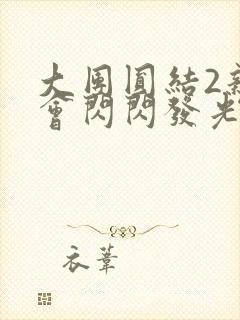 大團圓結2
會閃閃發光
衣葦